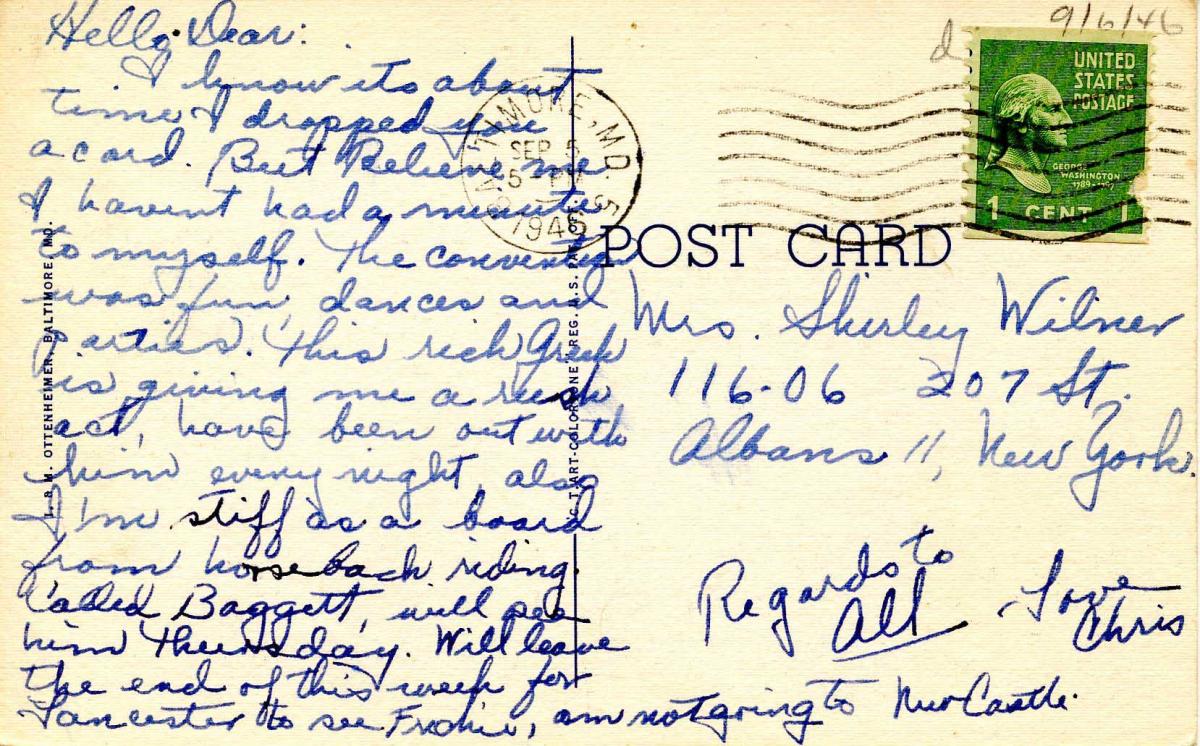 Hello Dear:
I know its about
time I dropped you
a card. But Believe me
I havent had a minute
to myself. The convention
was fun, dances and
parties. This rich Greek
is giving me a rush
act, have been out with
him every night, also
I'm stiff as a board
from horseback riding.
Called Baggett, will see
him Thursday. Will leave
the end of this week for
Lancaster to see Frankie, am not going to New Castle.
I. & M. OTTENHEIMER, BALTIMORE, MD.
BALTIMORE, MD. 5
SEP 5
5 - PM
1946
9/6/46
d
UNITED
STATES
POSTAGE
GEORGE
WASHINGTON
1789-1797
1 CENT 1
POST CARD
Mrs. Shirley Wilner
116-06 207 St.
Albans 11, New York.
Regards to
All
Love
Chris